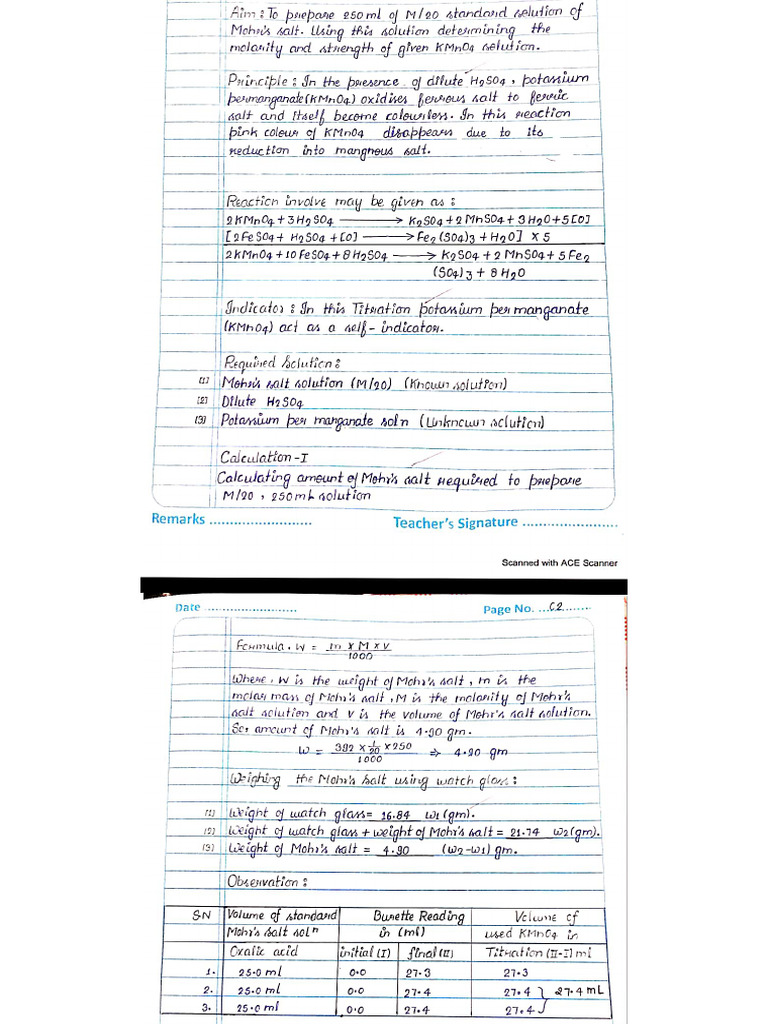 Aim : To prepare 250 ml of M/20 standard solution of
Mohr's salt. Using this solution determining the
molarity and strength of given KMnO4 solution.
Principle : In the presence of dilute H2SO4, potassium
permanganate (KMnO4) oxidises ferrous salt to ferric
salt and itself become colourless. In this reaction
pink colour of KMnO4 disappears due to its
reduction into mangnous salt.
Reaction involve may be given as :
2KMnO4 + 3H2SO4 ⟶ K2SO4 + 2MnSO4 + 3H2O + 5[O]
[2FeSO4 + H2SO4 + [O] ⟶ Fe2(SO4)3 + H2O] × 5
2KMnO4 + 10FeSO4 + 8H2SO4 ⟶ K2SO4 + 2MnSO4 + 5Fe2
(SO4)3 + 8H2O
Indicator : In this Titration potassium permanganate
(KMnO4) act as a self-indicator.
Required Solution :
[1] Mohr's salt solution (M/20) (Known solution)
[2] Dilute H2SO4
[3] Potassium permanganate soln (Unknown solution)
Calculation-I
Calculating amount of Mohr's salt required to prepare
M/20, 250mL solution
Remarks ......................... Teacher's Signature .......................
Scanned with ACE Scanner
Date ...................... Page No. ...02.......
Formula, W = m × M × V / 1000
Where, W is the weight of Mohr's salt, m is the
molar mass of Mohr's salt, M is the molarity of Mohr's
salt solution and V is the volume of Mohr's salt solution.
So, amount of Mohr's salt is 4.90 gm.
W = 392 × 1/20 × 250 / 1000 ⇒ 4.90 gm
Weighing the Mohr's Salt using watch glass :
[1] Weight of watch glass = 16.84 W1 (gm).
[2] Weight of watch glass + weight of Mohr's salt = 21.74 W2 (gm).
[3] Weight of Mohr's salt = 4.90 (W2-W1) gm.
Observation :
SN Volume of standard Burette Reading Volume of
Mohr's salt solⁿ in (ml) used KMnO4 in
Oxalic acid initial (I) final (II) Titration (II-I) ml
1. 25.0 ml 0.0 27.3 27.3
2. 25.0 ml 0.0 27.4 27.4 } 27.4 mL
3. 25.0 ml 0.0 27.4 27.4